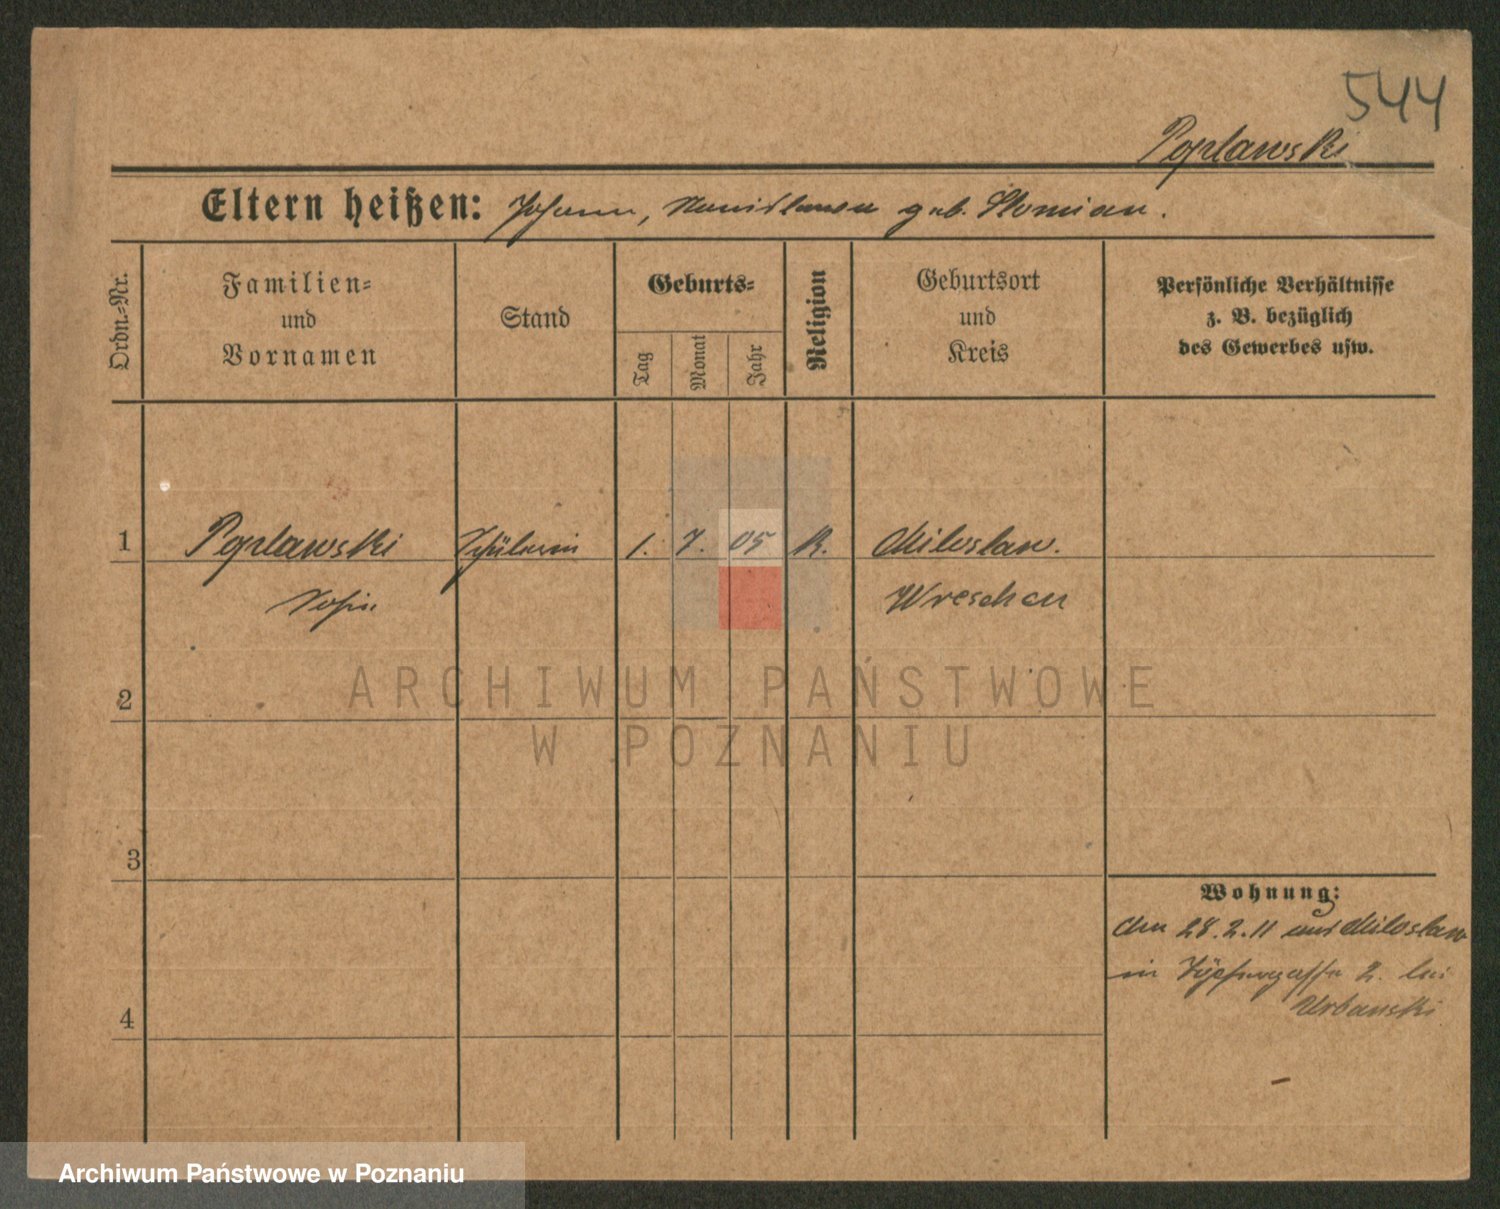 544
Poplawski
Eltern heißen: Johann, Stanislawa geb. Slomian.
Ordn.-Nr.
Familien- und Vornamen
Stand
Geburts-
Tag
Monat
Jahr
Religion
Geburtsort und Kreis
Persönliche Verhältnisse
z. B. bezüglich
des Gewerbes usw.
1 Poplawski Schülerin 1. 7. 05 K. Miloslaw.
Sofie Wreschen
2
ARCHIWUM PAŃSTWOWE
W POZNANIU
3
Wohnung:
den 28.2.11 aus Miloslaw
in Töpfergasse 2. bei
Urbanski
4
Archiwum Państwowe w Poznaniu